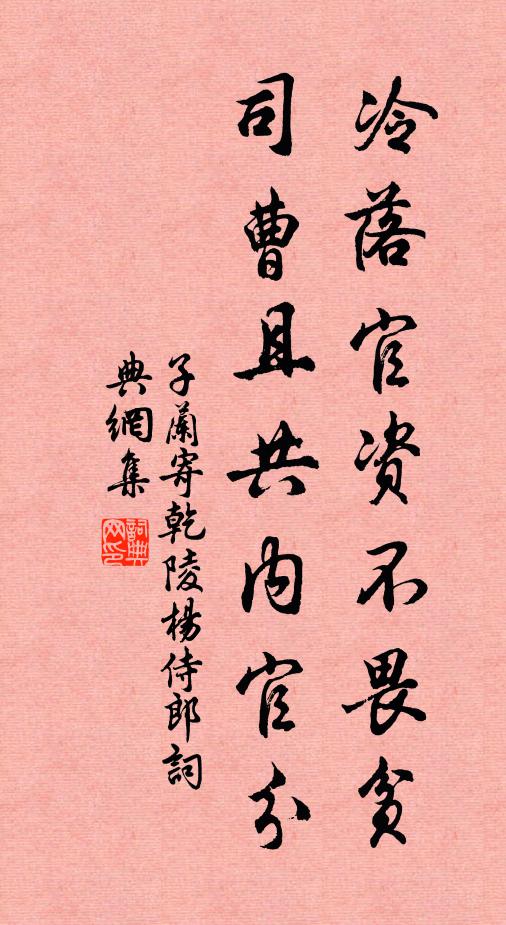 冷落官資不畏貧
司曹且共內官分
子蘭寄乾陵楊侍郎詞
典網集
詞典网印